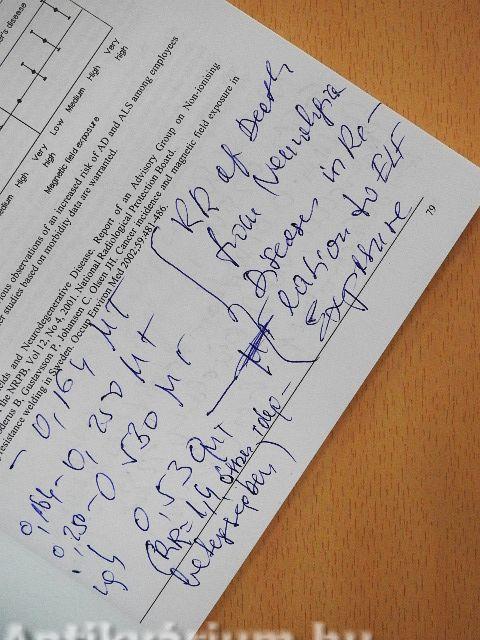 r's disease
Medium High Very high
Very high Low Medium High Very high
Magnetic field exposure
ious observations of an increased risk of AD and ALS among employees
er studies based on morbidity data are warranted.
elds and Neurodegenerative Disease, Report of an Advisory Group on Non-ionising
the NRPB, Vol 12, No 4, 2001. National Radiological Protection Board.
oderus B, Gustavsson P, Johansen C, Olsen JH. Cancer incidence and magnetic field exposure in
resistance welding in Sweden. Occup Environ Med 2002;59:481-486.
RR of Death
from Neurologia
Diseases in Re-
lation to ELF
Exposure
- 0,164 μT
0,164-0,250 μT
0,250-0,530 μT
0,53
(RR=1,4
79
Antikvárium.hu